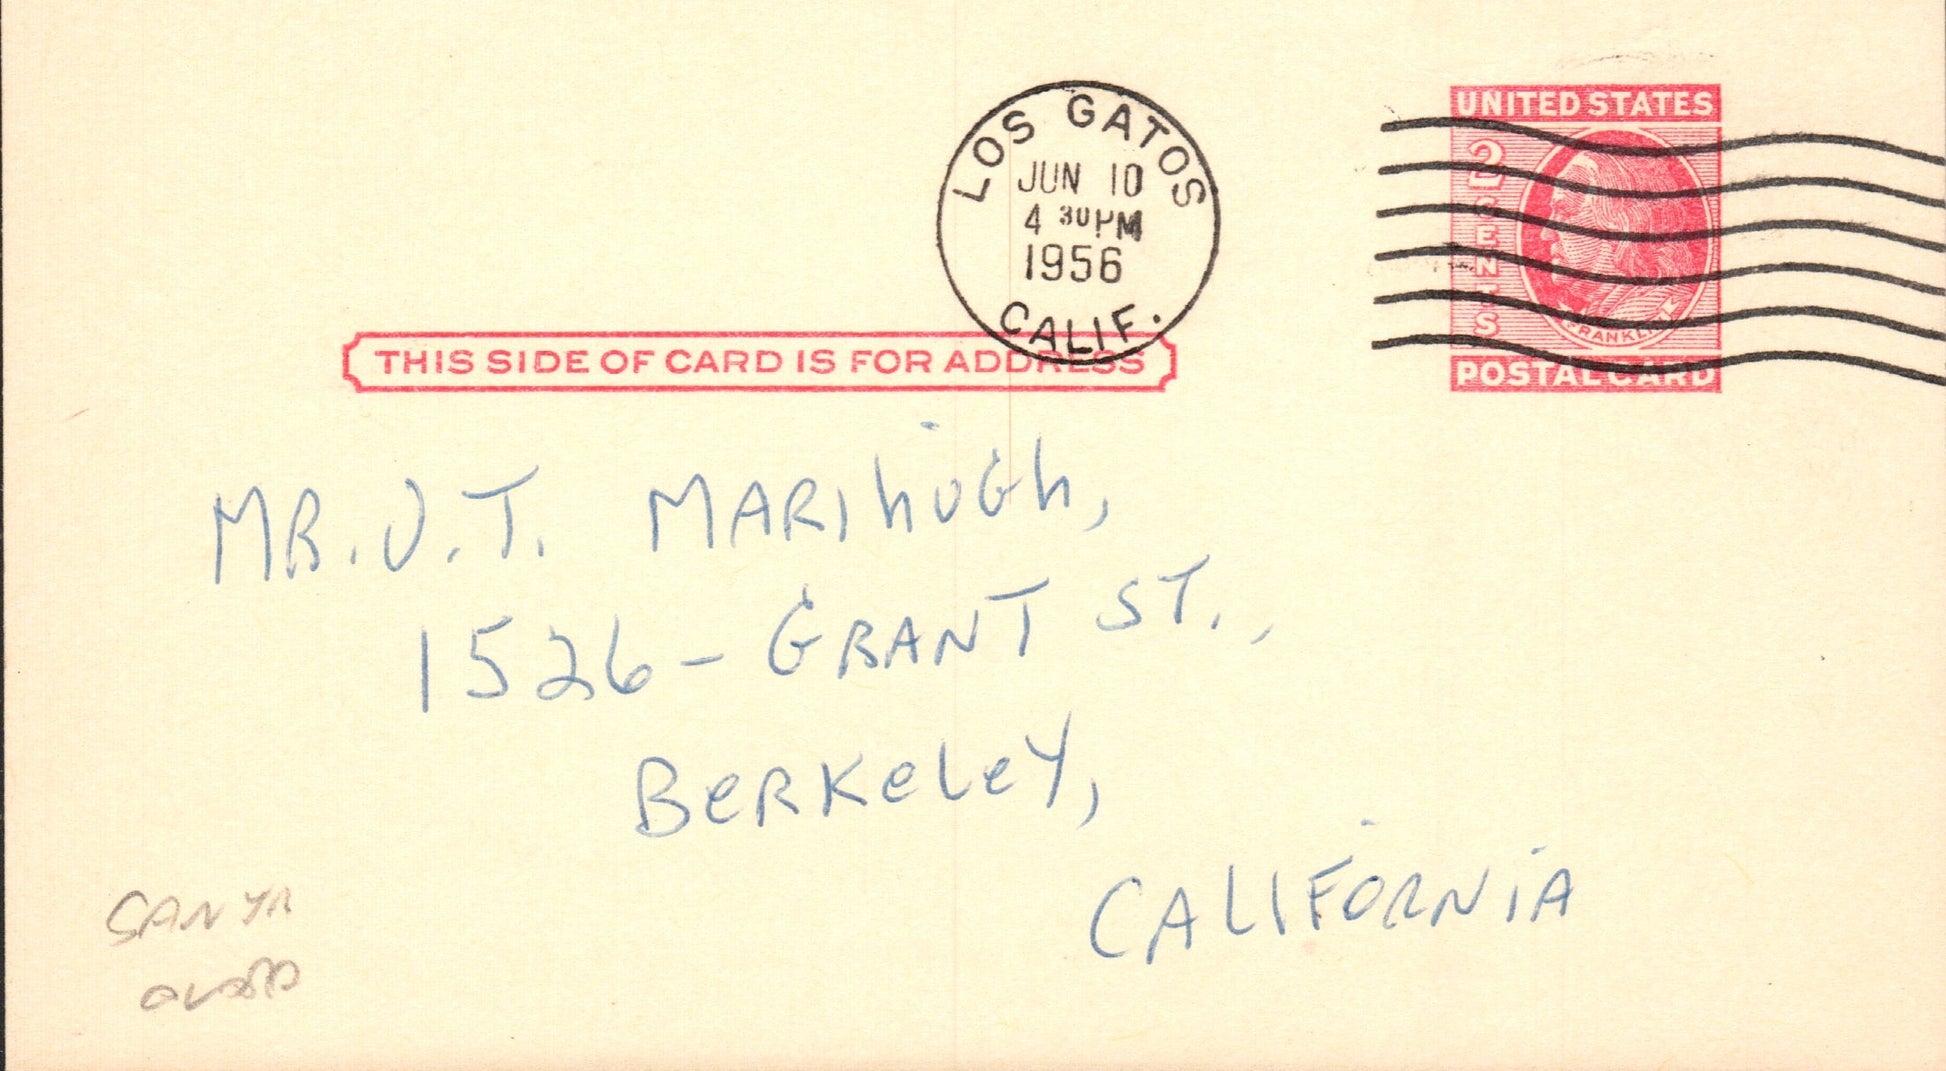 LOS GATOS
JUN 10
4 30 PM
1956
CALIF.
UNITED STATES
2 CENTS
FRANKLIN
POSTAL CARD
THIS SIDE OF CARD IS FOR ADDRESS
MR. J. T. MARIHUGH,
1526 - GRANT ST.,
BERKELEY,
CALIFORNIA